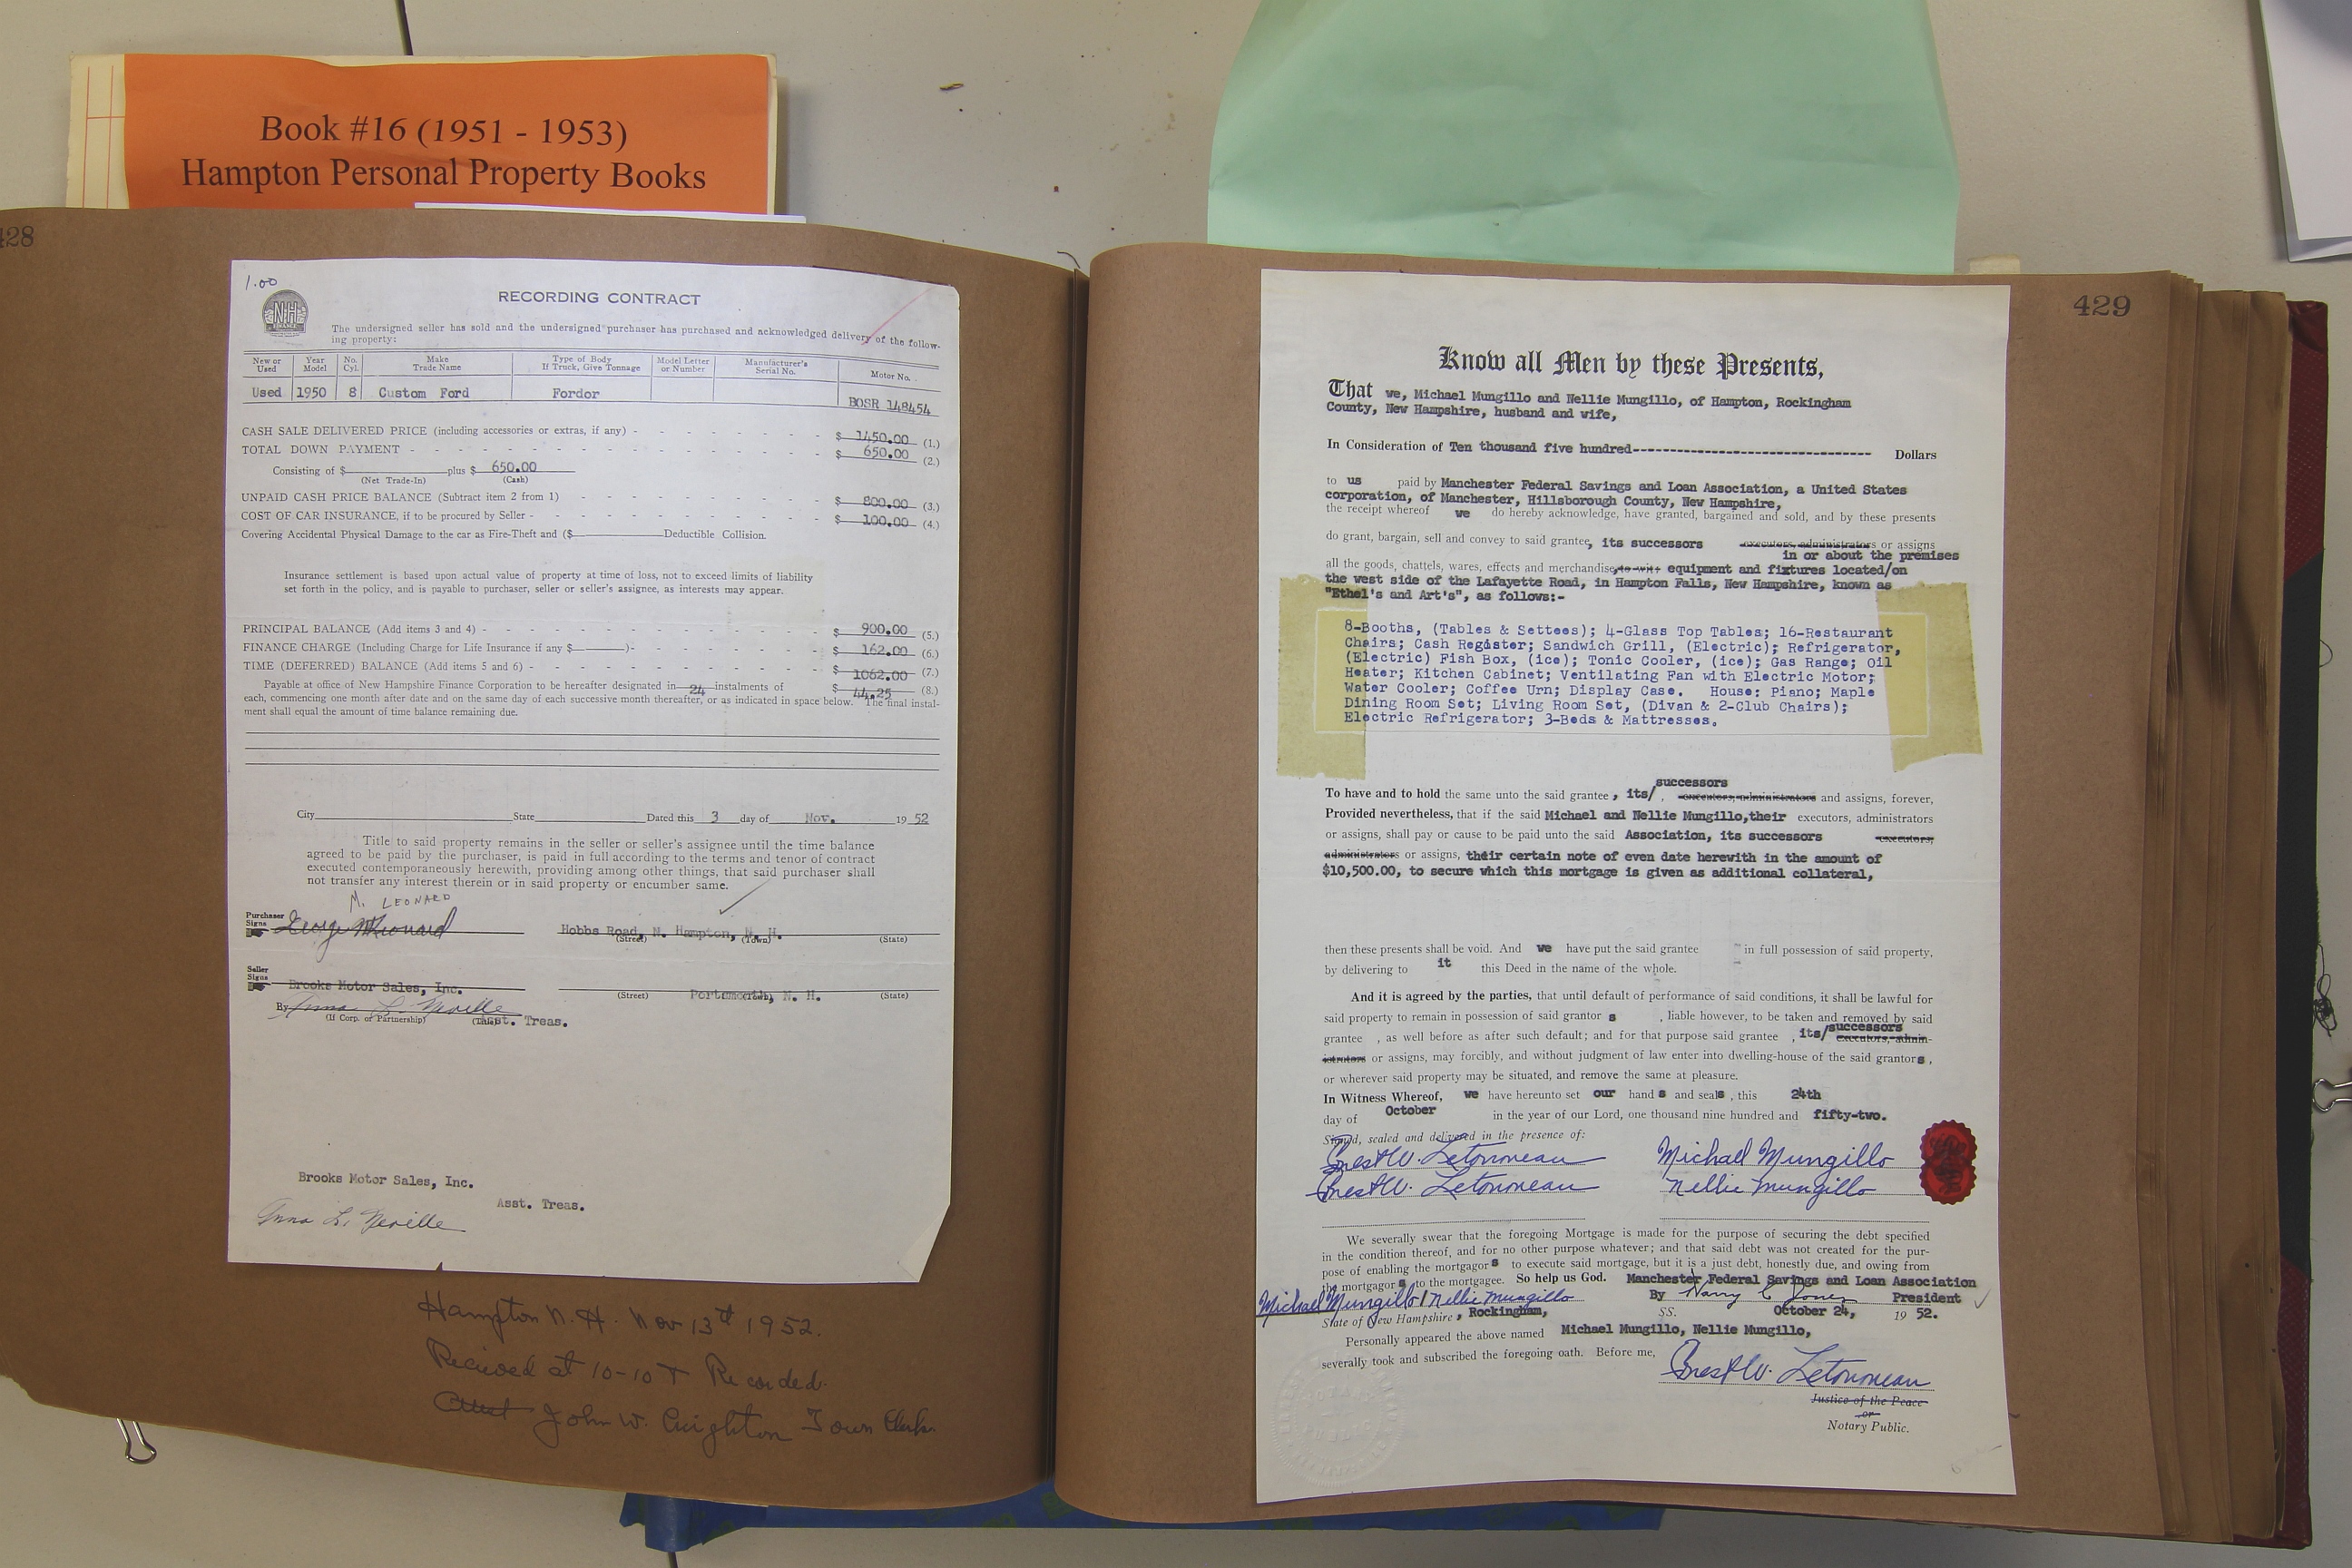 Book #16 (1951 - 1953)
Hampton Personal Property Books
428
1.00
NH
FINANCE
RECORDING CONTRACT
The undersigned seller has sold and the undersigned purchaser has purchased and acknowledged delivery of the follow-
ing property:
New or Used Year Model No. Cyl. Make Trade Name Type of Body If Truck, Give Tonnage Model Letter or Number Manufacturer's Serial No. Motor No.
Used 1950 8 Custom Ford Fordor BOSR 148454
CASH SALE DELIVERED PRICE (including accessories or extras, if any) - $ 1450.00 (1.)
TOTAL DOWN PAYMENT - $ 650.00 (2.)
Consisting of $ plus $ 650.00
(Net Trade-In) (Cash)
UNPAID CASH PRICE BALANCE (Subtract item 2 from 1) $ 800.00 (3.)
COST OF CAR INSURANCE, if to be procured by Seller - $ 100.00 (4.)
Covering Accidental Physical Damage to the car as Fire-Theft and ($ Deductible Collision.
Insurance settlement is based upon actual value of property at time of loss, not to exceed limits of liability
set forth in the policy, and is payable to purchaser, seller or seller's assignee, as interests may appear.
PRINCIPAL BALANCE (Add items 3 and 4) - $ 900.00 (5.)
FINANCE CHARGE (Including Charge for Life Insurance if any $ )- $ 162.00 (6.)
TIME (DEFERRED) BALANCE (Add items 5 and 6) - $ 1062.00 (7.)
Payable at office of New Hampshire Finance Corporation to be hereafter designated in 24 instalments of $ 44.25 (8.)
each, commencing one month after date and on the same day of each successive month thereafter, or as indicated in space below. The final instal-
ment shall equal the amount of time balance remaining due.
City State Dated this 3 day of Nov. 19 52
Title to said property remains in the seller or seller's assignee until the time balance
agreed to be paid by the purchaser, is paid in full according to the terms and tenor of contract
executed contemporaneously herewith, providing among other things, that said purchaser shall
not transfer any interest therein or in said property or encumber same.
M. LEONARD
Purchaser Signs George M Leonard Hobbs Road, N. Hampton, N. H.
(Street) (Town) (State)
Seller Signs Brooks Motor Sales, Inc. Portsmouth, N. H.
(Street) (Town) (State)
By Anna L. Neville
(If Corp. or Partnership) (Title) Asst. Treas.
Brooks Motor Sales, Inc.
Asst. Treas.
Anna L. Neville
Hampton N. H. Nov 13th 1952.
Recieved at 10-10 & Recorded.
Attest John W. Creighton Town Clerk.
429
Know all Men by these Presents,
That we, Michael Mungillo and Nellie Mungillo, of Hampton, Rockingham
County, New Hampshire, husband and wife,
In Consideration of Ten thousand five hundred-------------------------------- Dollars
to us paid by Manchester Federal Savings and Loan Association, a United States
corporation, of Manchester, Hillsborough County, New Hampshire,
the receipt whereof we do hereby acknowledge, have granted, bargained and sold, and by these presents
do grant, bargain, sell and convey to said grantee, its successors executors, administrators or assigns
in or about the premises
all the goods, chattels, wares, effects and merchandise, to wit: equipment and fixtures located/on
the west side of the Lafayette Road, in Hampton Falls, New Hampshire, known as
"Ethel's and Art's", as follows:-
8-Booths, (Tables & Settees); 4-Glass Top Tables; 16-Restaurant
Chairs; Cash Register; Sandwich Grill, (Electric); Refrigerator,
(Electric) Fish Box, (ice); Tonic Cooler, (ice); Gas Range; Oil
Heater; Kitchen Cabinet; Ventilating Fan with Electric Motor;
Water Cooler; Coffee Urn; Display Case. House: Piano; Maple
Dining Room Set; Living Room Set, (Divan & 2-Club Chairs);
Electric Refrigerator; 3-Beds & Mattresses.
successors
To have and to hold the same unto the said grantee, its/, executors, administrators and assigns, forever,
Provided nevertheless, that if the said Michael and Nellie Mungillo,their executors, administrators
or assigns, shall pay or cause to be paid unto the said Association, its successors executors,
administrators or assigns, their certain note of even date herewith in the amount of
$10,500.00, to secure which this mortgage is given as additional collateral,
then these presents shall be void. And we have put the said grantee in full possession of said property,
by delivering to it this Deed in the name of the whole.
And it is agreed by the parties, that until default of performance of said conditions, it shall be lawful for
said property to remain in possession of said grantor s , liable however, to be taken and removed by said
successors
grantee , as well before as after such default; and for that purpose said grantee , its/ executors, admin-
istrators or assigns, may forcibly, and without judgment of law enter into dwelling-house of the said grantors ,
or wherever said property may be situated, and remove the same at pleasure.
In Witness Whereof, we have hereunto set our hand s and seals , this 24th
day of October in the year of our Lord, one thousand nine hundred and fifty-two.
Signed, sealed and delivered in the presence of:
Ernest W. Letonneau Michael Mungillo
Ernest W. Letonneau Nellie Mungillo
We severally swear that the foregoing Mortgage is made for the purpose of securing the debt specified
in the condition thereof, and for no other purpose whatever; and that said debt was not created for the pur-
pose of enabling the mortgagor s to execute said mortgage, but it is a just debt, honestly due, and owing from
the mortgagor s to the mortgagee. So help us God. Manchester Federal Savings and Loan Association
Michael Mungillo / Nellie Mungillo By Harry C Jones President
State of New Hampshire, Rockingham, SS. October 24, 19 52.
Personally appeared the above named Michael Mungillo, Nellie Mungillo,
severally took and subscribed the foregoing oath. Before me,
Ernest W. Letonneau
Justice of the Peace
or
Notary Public.